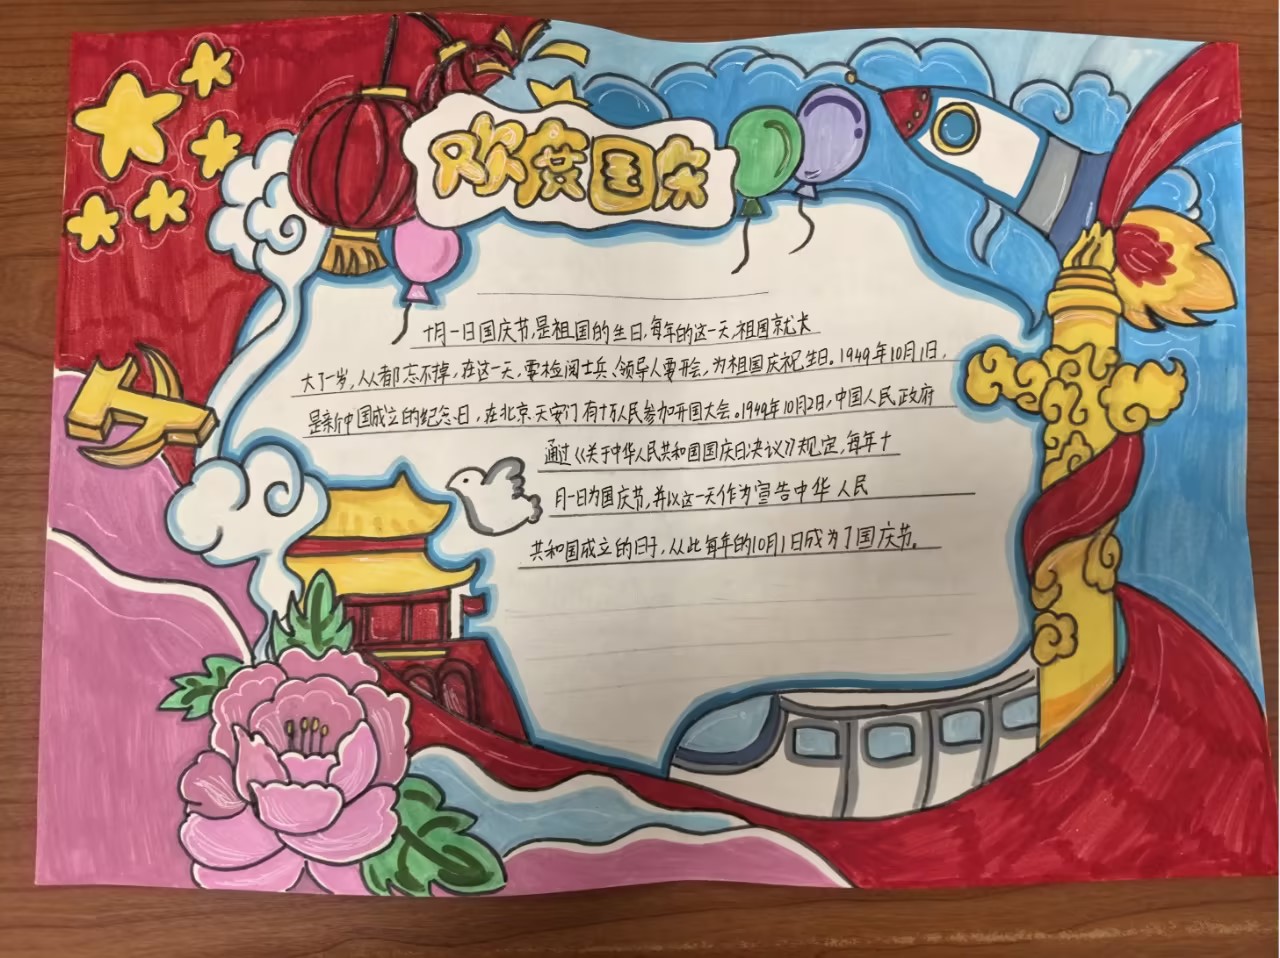 欢度国庆
十月一日国庆节,是祖国的生日,每年的这一天,祖国就大
大了一岁,人人都忘不掉,在这一天,要检阅士兵、领导人要开会,为祖国庆祝生日。1949年10月1日,
是新中国成立的纪念日,在北京天安门有十万人民参加开国大会。1949年10月2日,中国人民政府
通过《关于中华人民共和国国庆日决议》规定,每年十
月一日为国庆节,并以这一天作为宣告中华人民
共和国成立的日子,从此每年的10月1日成为了国庆节。